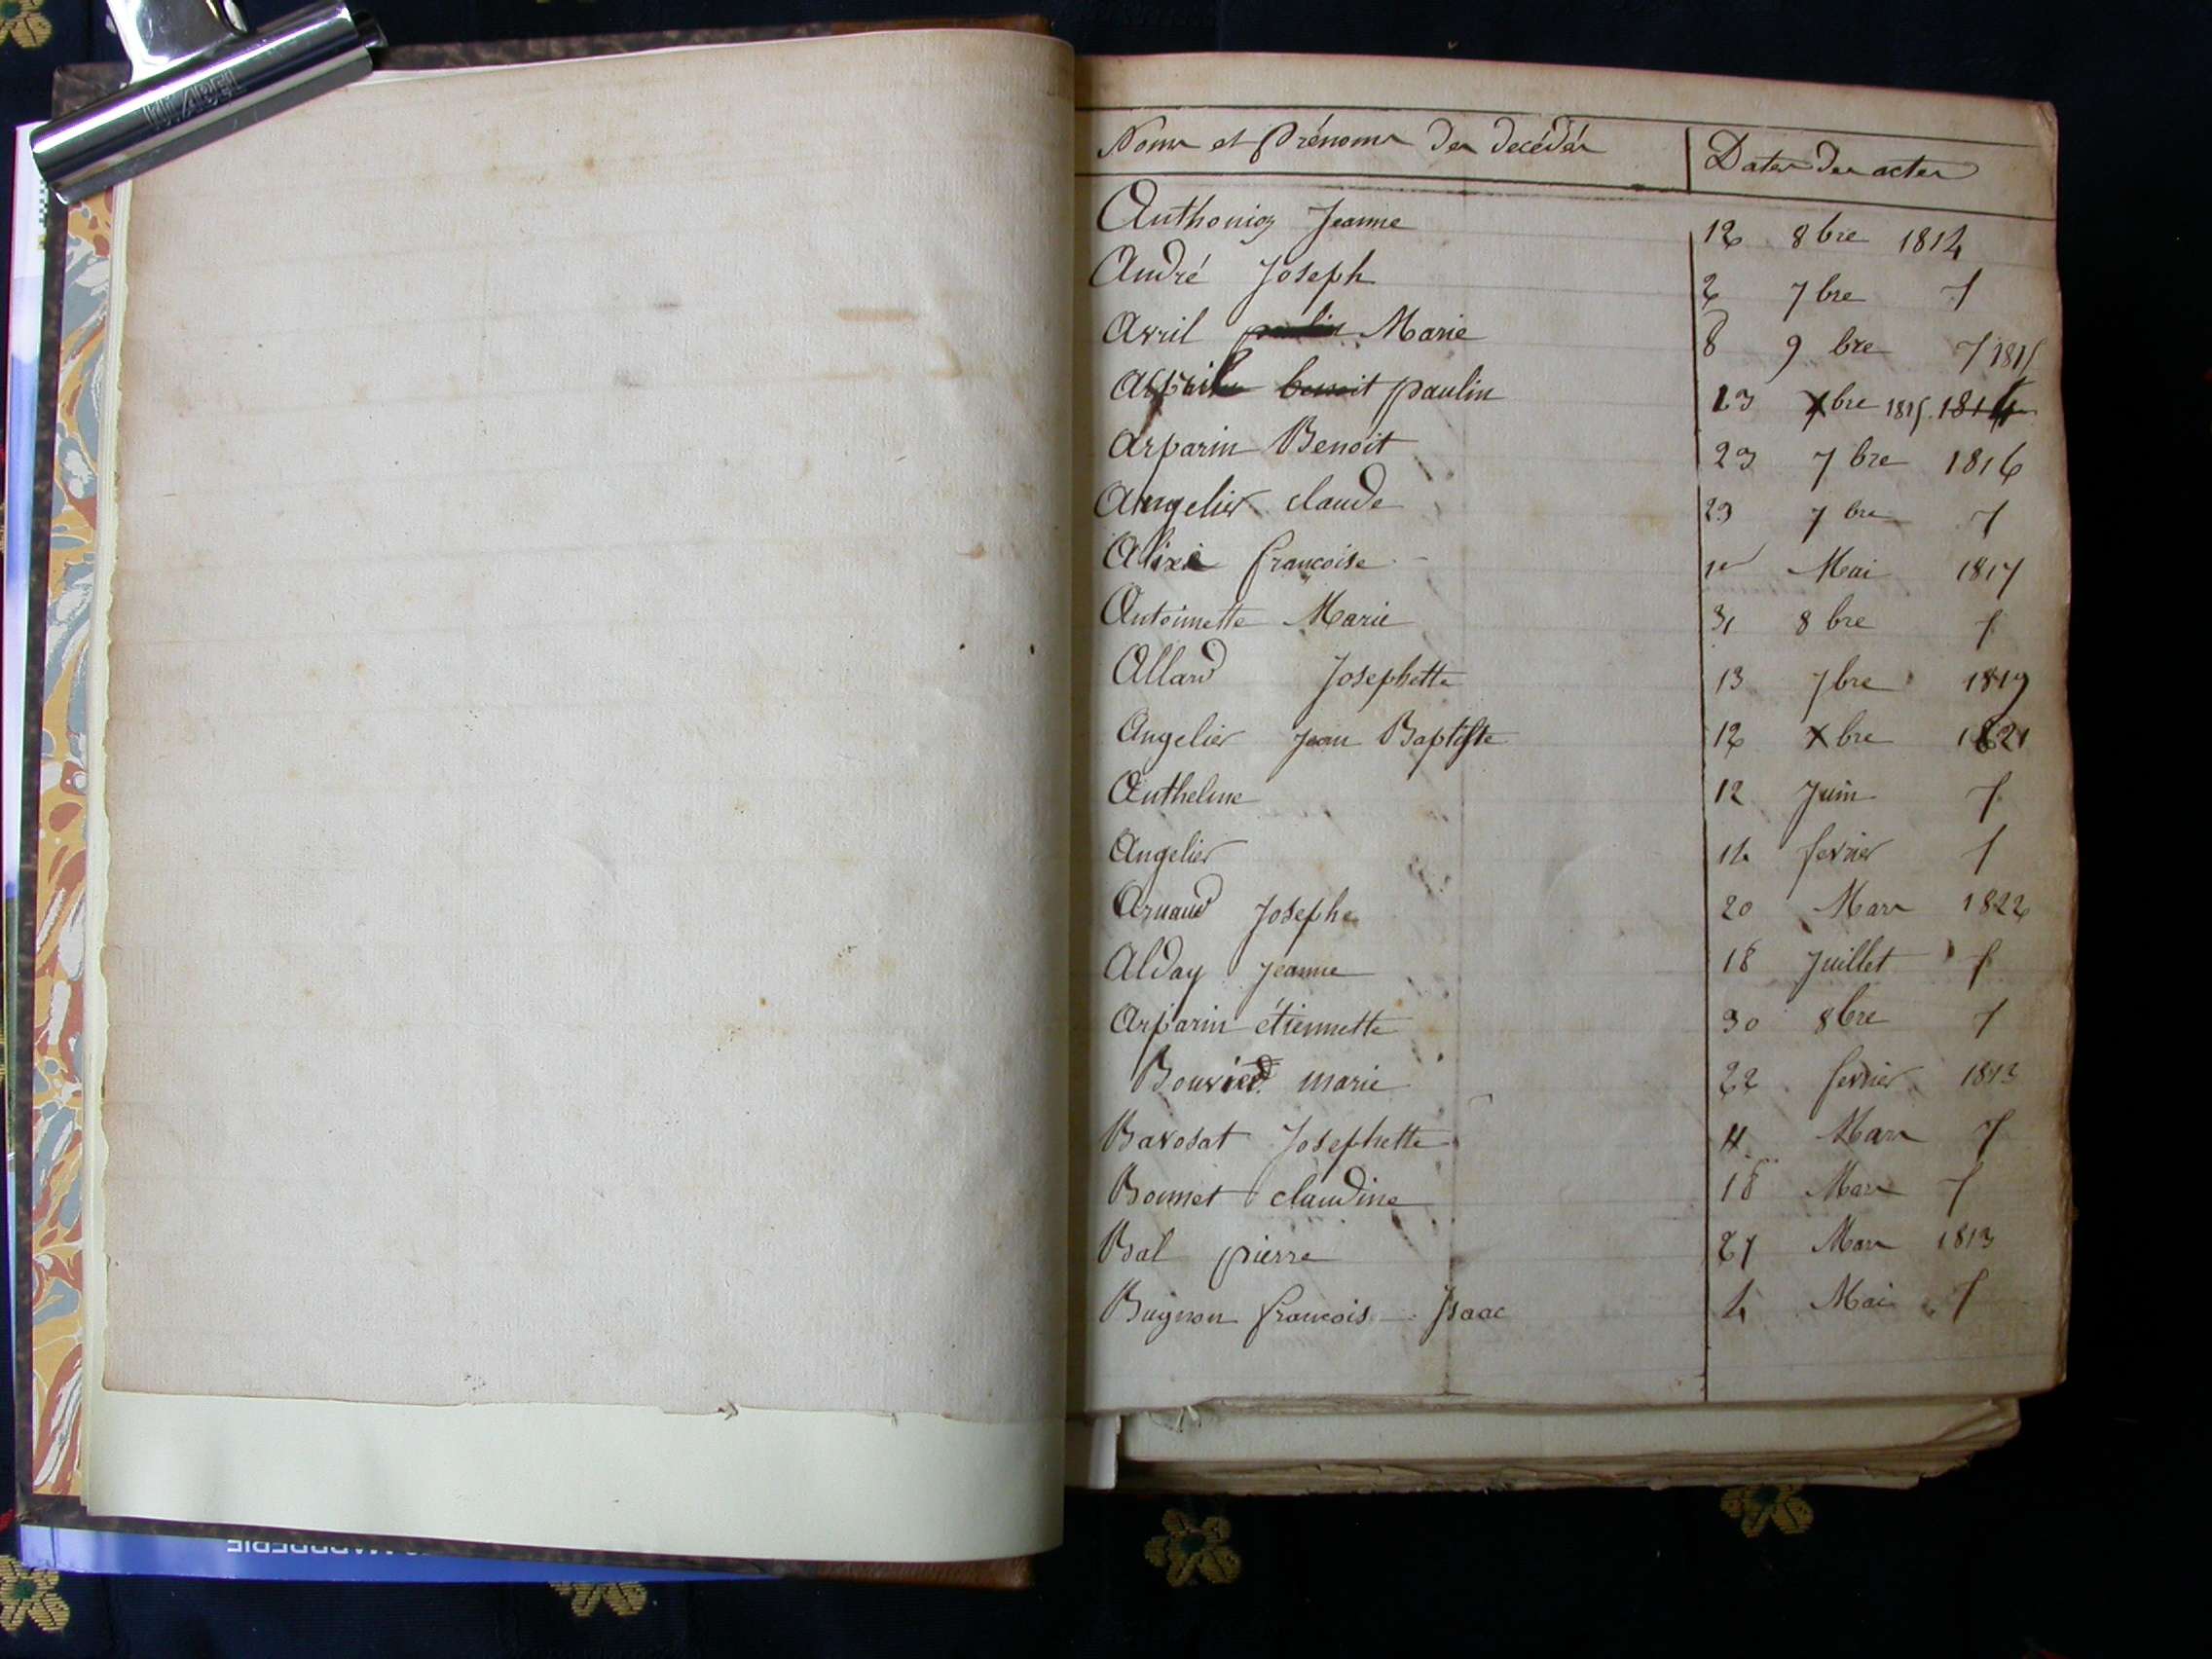 KLABEL
Noms et Prénoms des decédés Dates des actes
Anthonioz Jeanne 12 8bre 1814
André Joseph 2 7bre f
Avril paulin Marie 8 9bre f 1815
benoit paulin 23 Xbre 1815 1814
Arparin Benoit 23 7bre 1816
Angelier claude 23 7bre f
Alixe francoise 1er Mai 1817
Antoinette Marie 31 8bre f
Allard Josephette 13 7bre 1819
Angelier Jean Baptiste 12 Xbre 1821
Anthelme 12 Juin f
Angelier 14 fevrier f
Arnaud Josephe 20 Mars 1822
Alday Jeanne 18 Juillet f
Arparin étiennette 30 8bre f
Bouvier marie 22 fevrier 1813
Bavosat Josephette 11 Mars f
Bonnet claudine 18 Mars f
Bal pierre 27 Mars 1813
Bugnon francois Isaac 4 Mai f